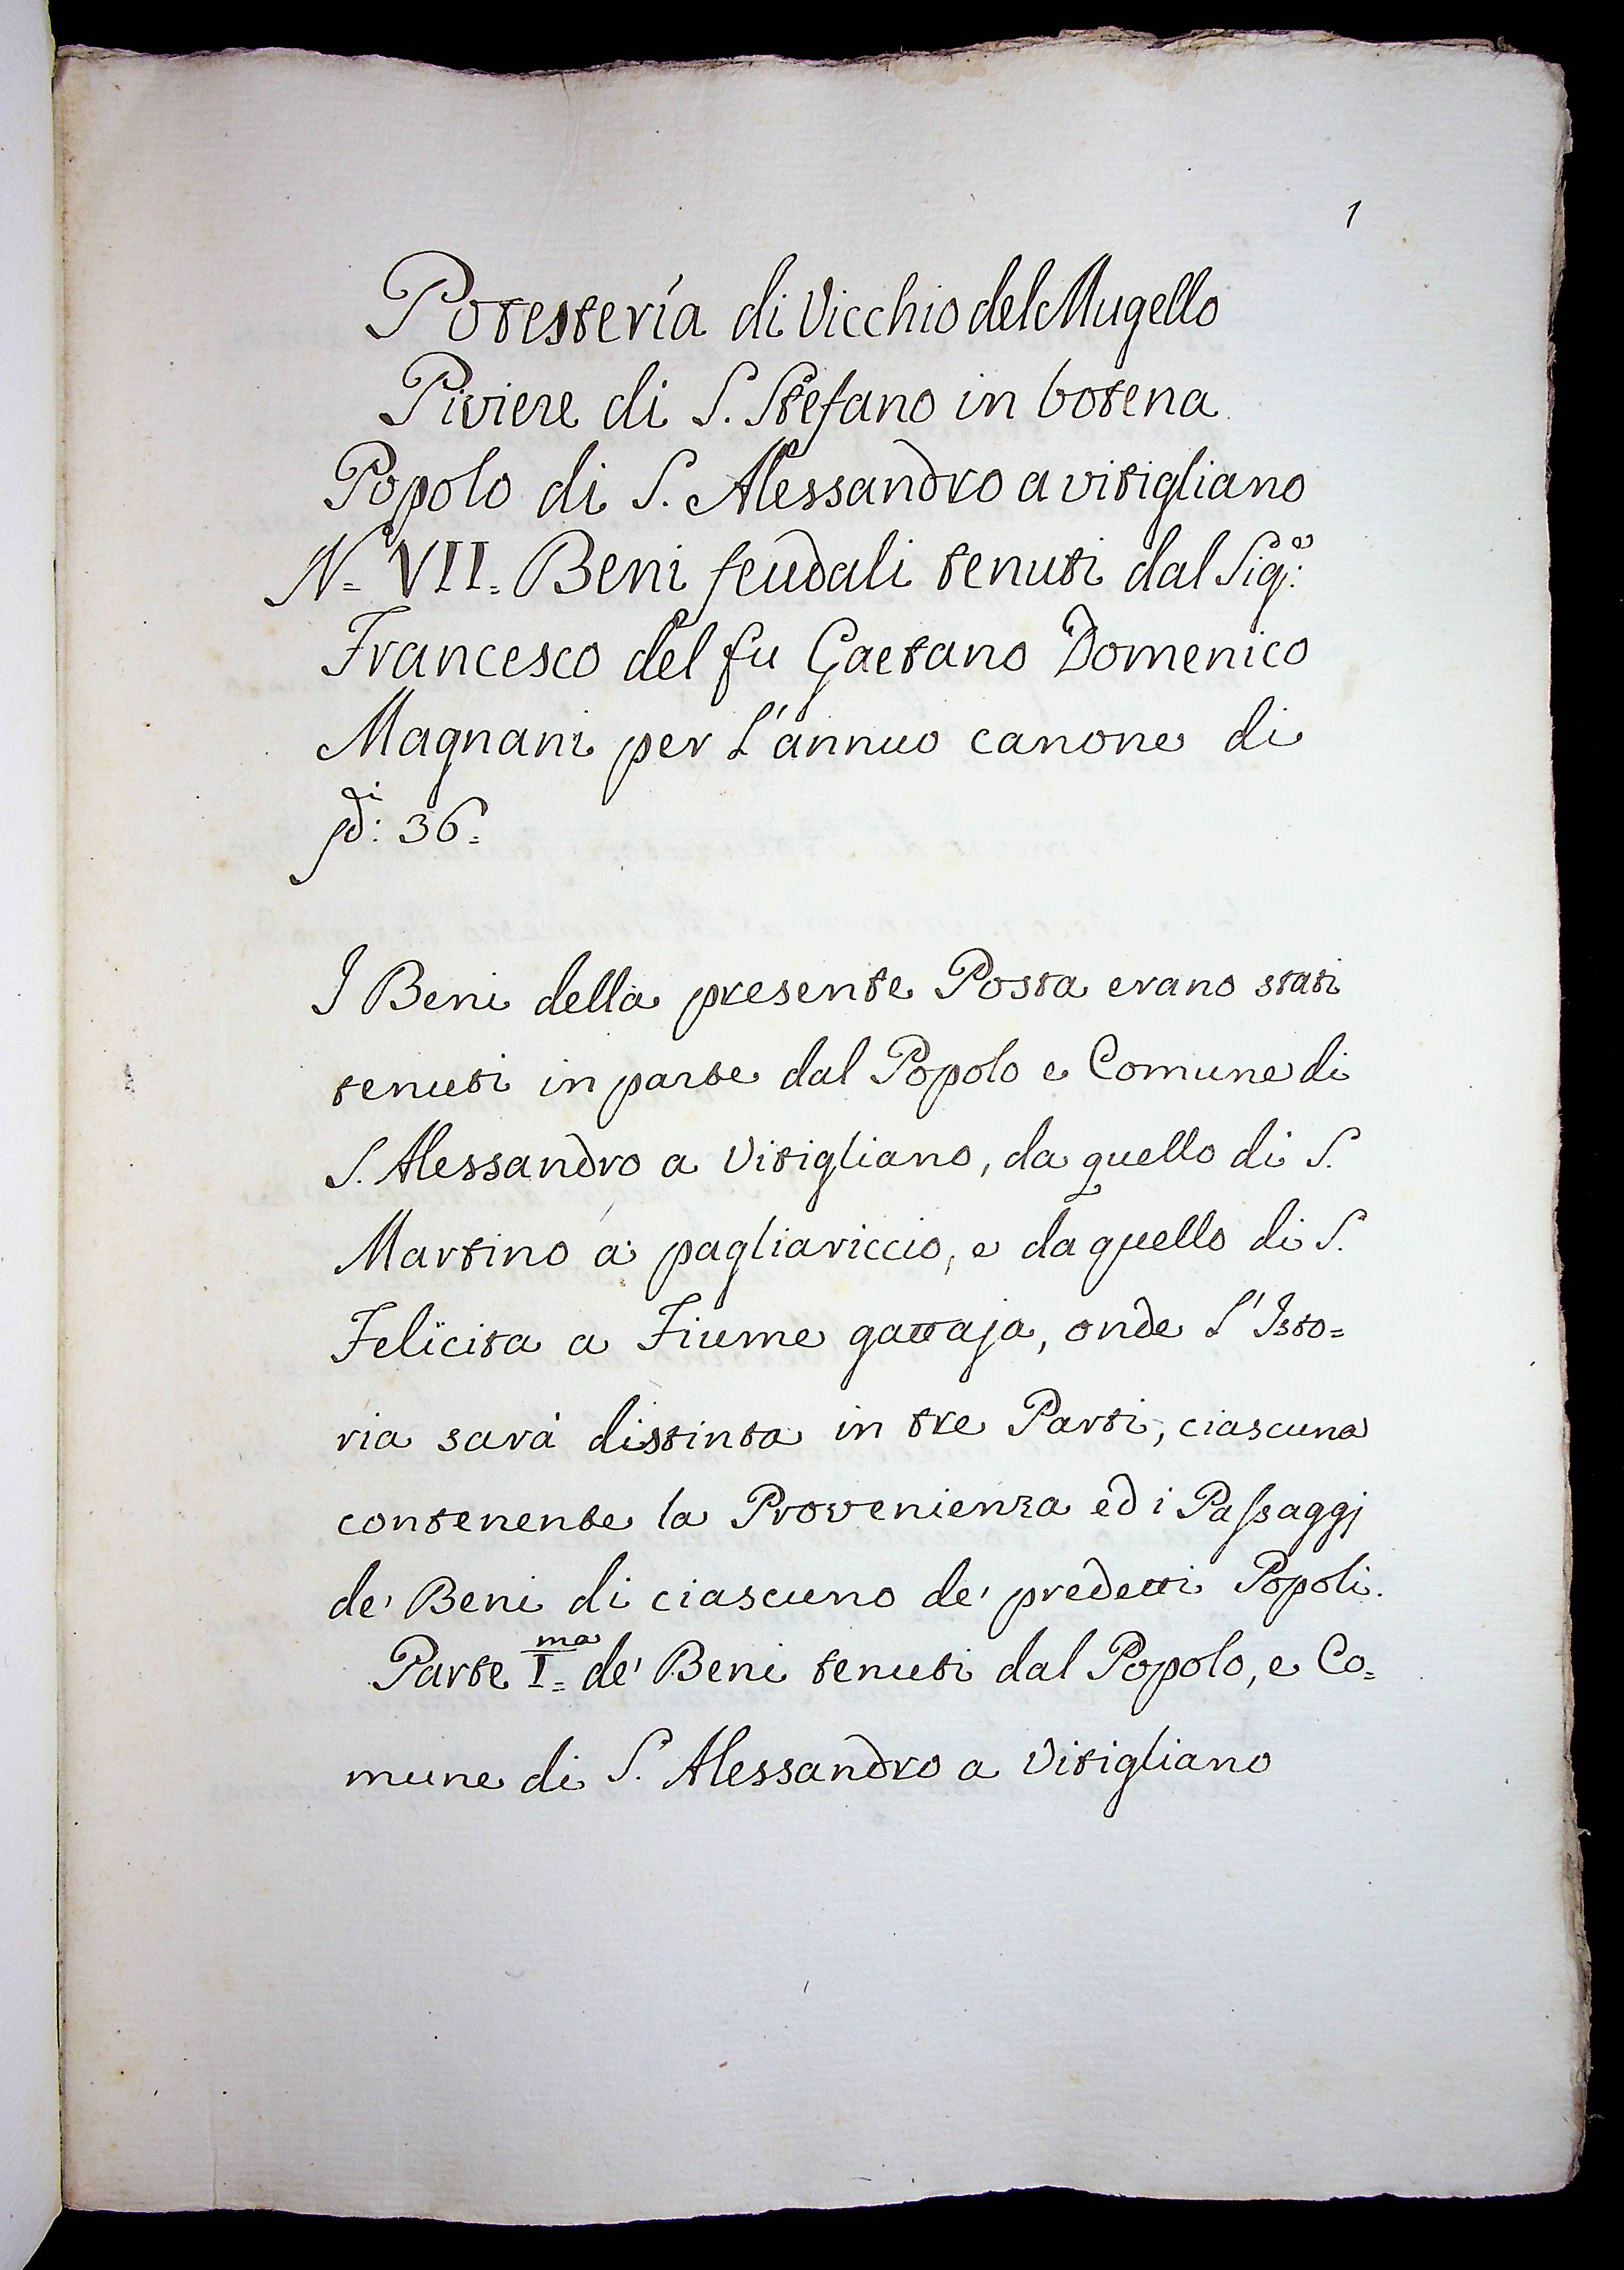 1
Potestería di Vicchio del Mugello
Piviere di S. Stefano in botena
Popolo di S. Alessandro a vitigliano
N= VII= Beni feudali tenuti dal Sig:ͬ
Francesco del fu Gaetano Domenico
Magnani per L'annuo canone di
36=
I Beni della presente Posta erano stati
tenuti in parte dal Popolo e Comune di
S. Alessandro a Vitigliano, da quello di S.
Martino a pagliariccio, e da quello di S.
Felicita a Fiume gattaja, onde L'Isto=
ria sarà distinta in tre Parti, ciascuna
contenente la Provenienza ed i Paſsaggj
de' Beni di ciascuno de' predetti Popoli.
Parte I=ma de' Beni tenuti dal Popolo, e Co=
mune di S. Alessandro a Vitigliano